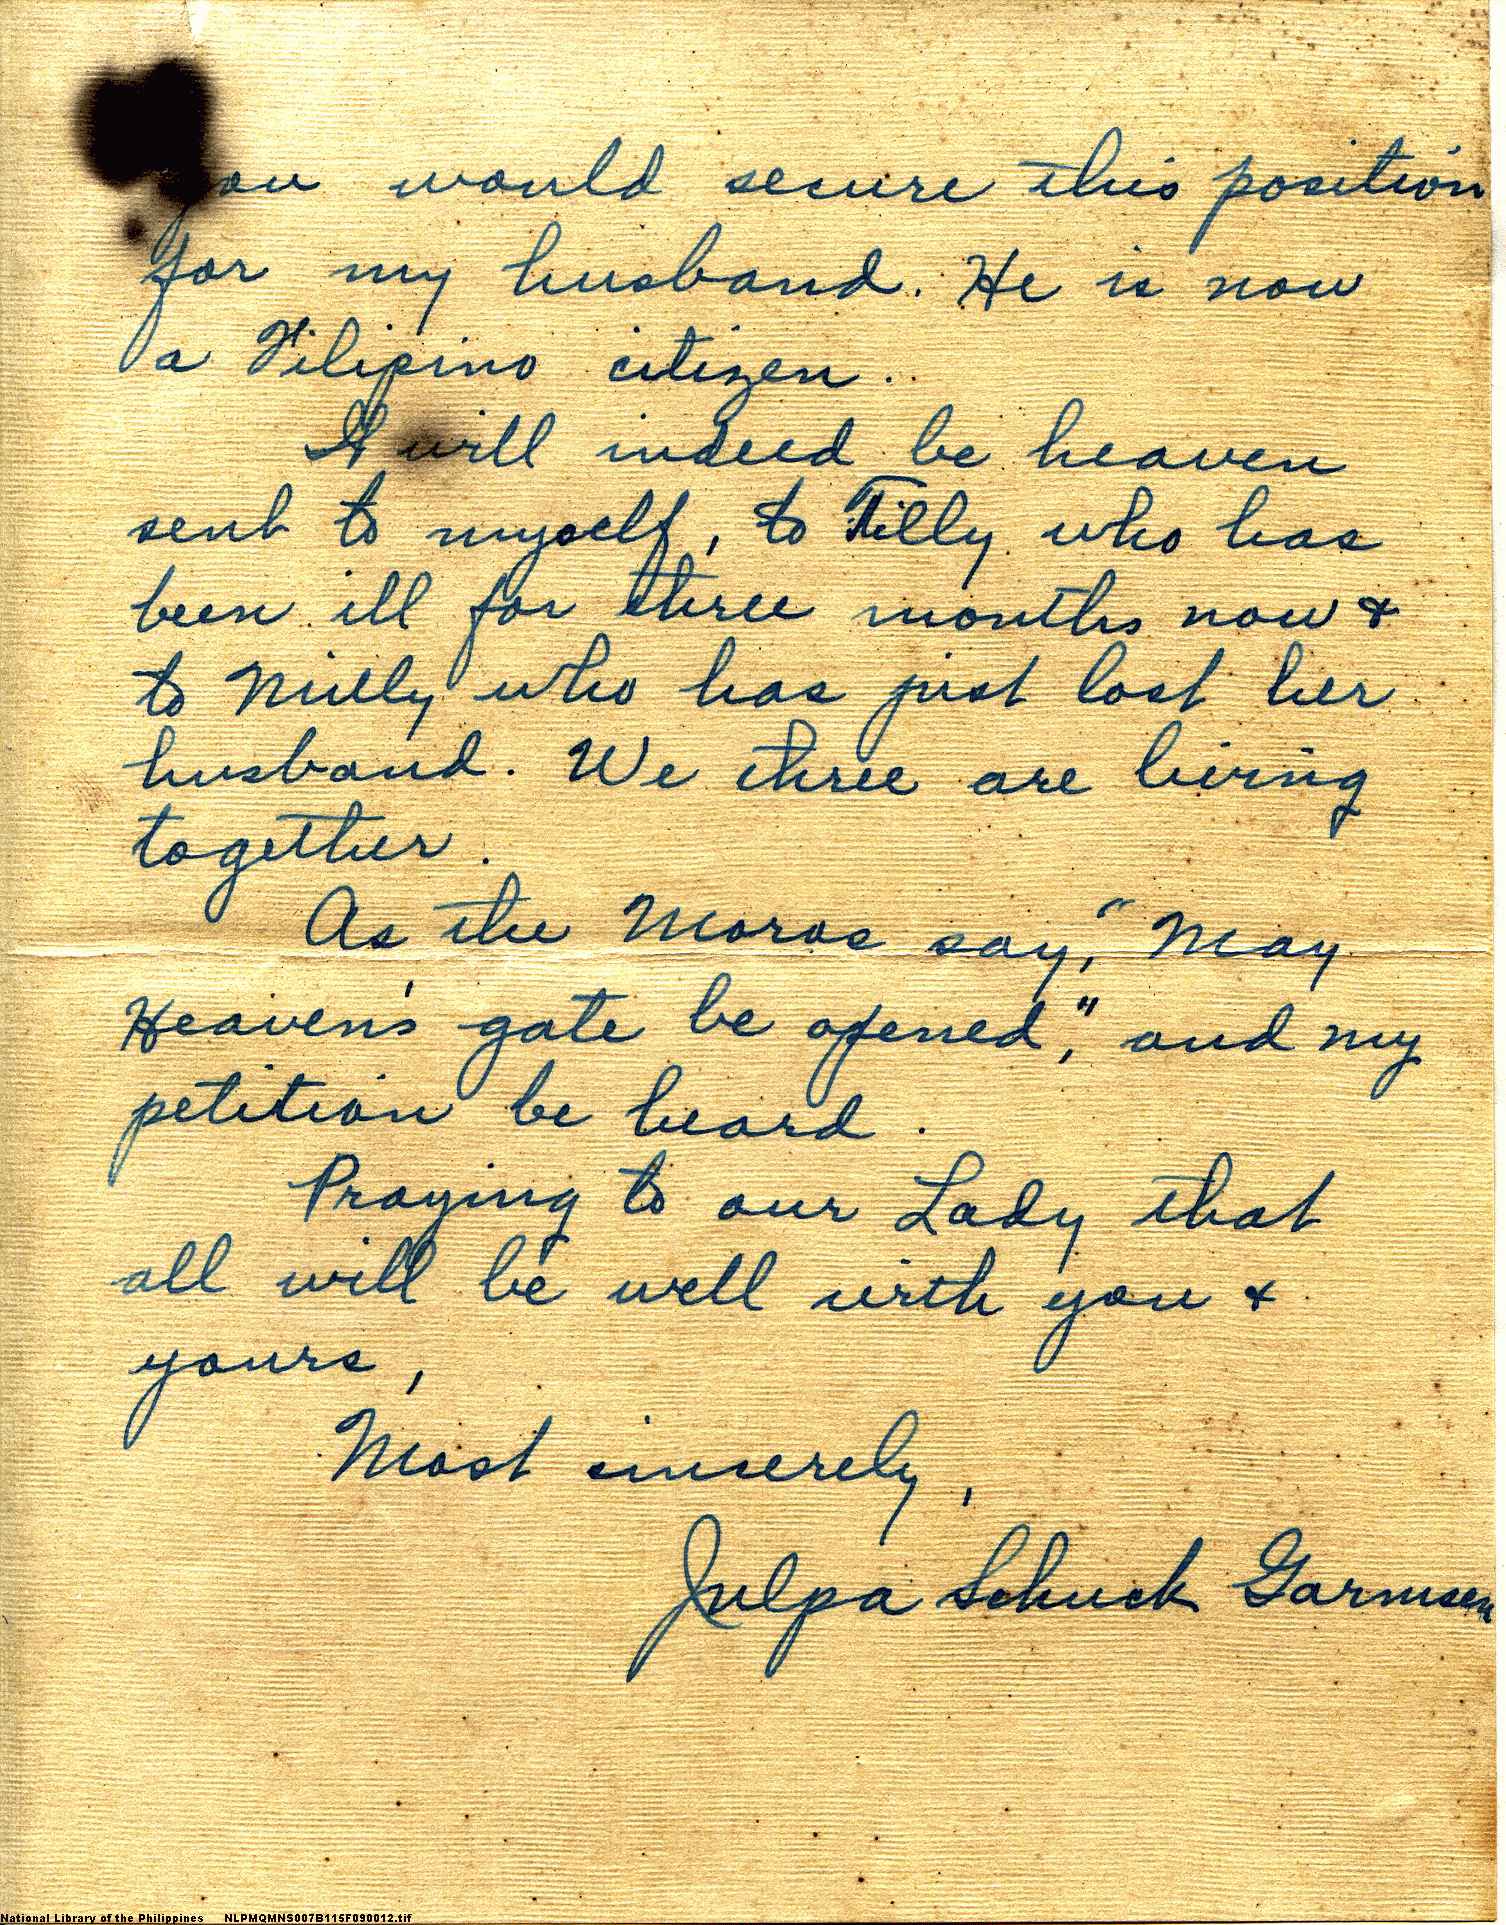 you would secure this position
for my husband. He is now
a Filipino citizen.
It will indeed be heaven
sent to myself, to Tilly who has
been ill for three months now &
to Milly who has just lost her
husband. We three are living
together.
As the Moros say, "May
Heaven's gate be opened," and my
petition be heard.
Praying to our Lady that
all will be well with you &
yours,
Most sincerely,
Julpa Schuck Garmsen
National Library of the Philippines NLPMQMNS007B115F090012.tif